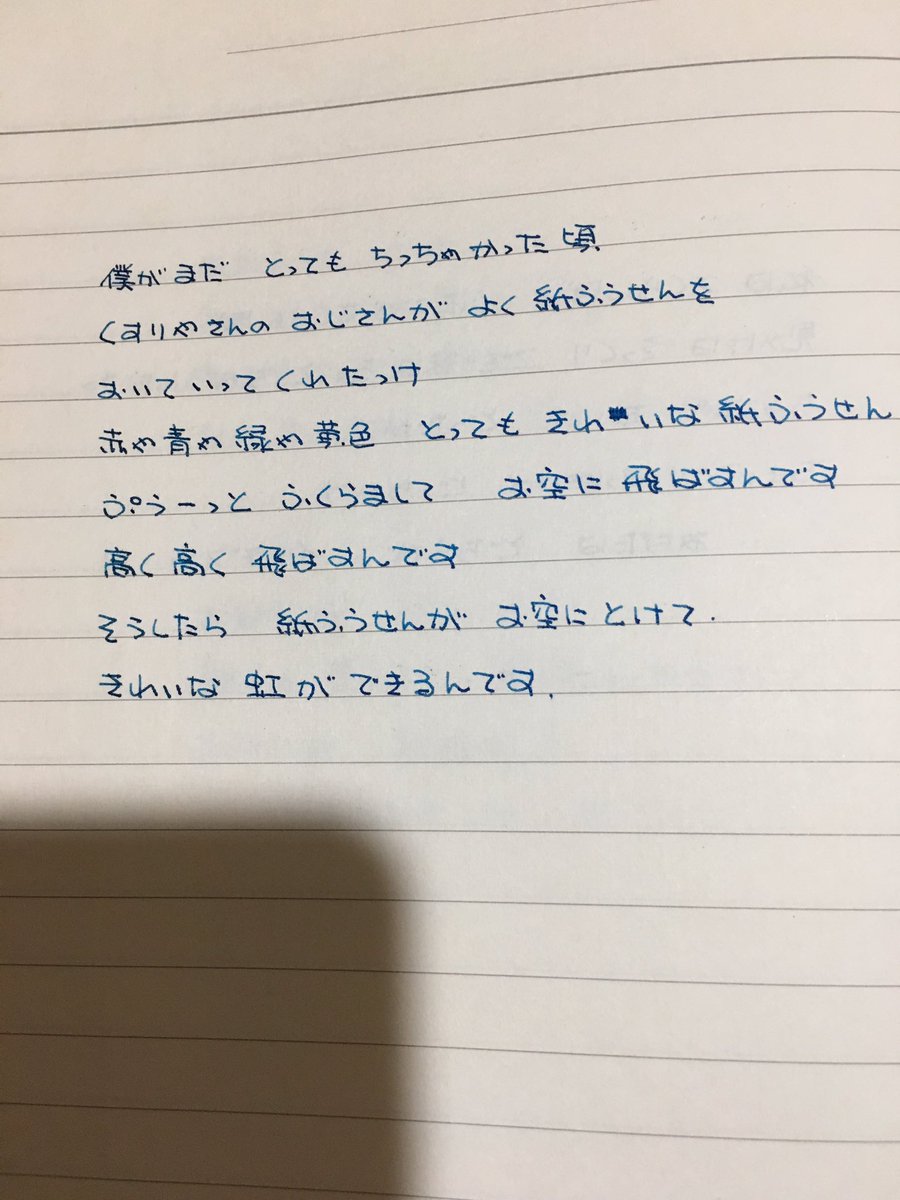 僕がまだ とっても ちっちゃかった頃
くすりやさんの おじさんが よく 紙ふうせんを
おいていって くれたっけ
赤や青や緑や夢色 とっても きれいな 紙ふうせん
ぷぅーっと ふくらまして お空に 飛ばすんです
高く 高く 飛ばすんです
そうしたら 紙ふうせんが お空に とけて.
きれいな 虹が できるんです.